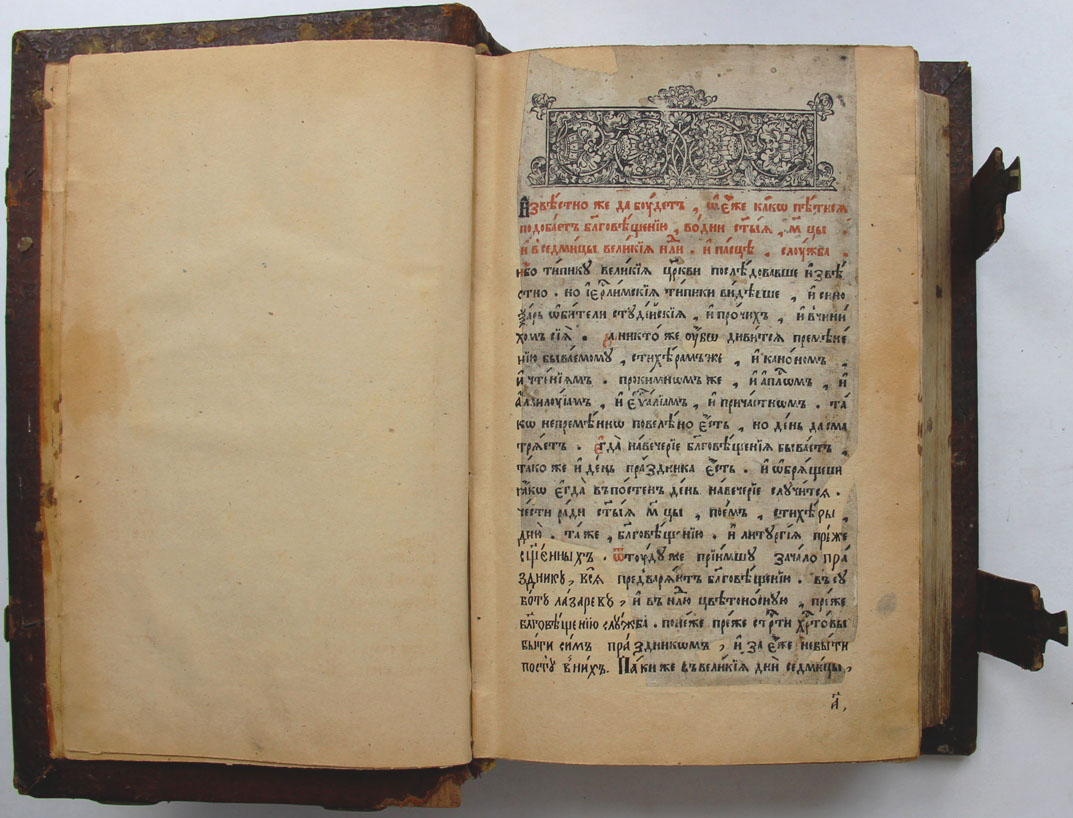 И҆звѣ́стно же да̀ боу́детъ , ѡ҆ є҆́же ка́кѡ пѣ́тися
подоба́етъ бл҃говѣ́щенїю , во днѝ ст҃ы́ѧ , м҃цы .
и҆ в седми́цы вели́кїѧ нлⷣи . и҆ па́сцѣ . слоу́жба .
и҆́бо ти́пику вели́кїѧ цр҃кви послѣ́довавше и҆звѣ́
стно . но і҆ерⷭ҇ли́мскїѧ ти́пики ви́дѣвше , и҆ сино
за́рь ѡ҆би́тели студе́йскїѧ , и҆ про́чихъ , и҆ вчини́
хомъ сїѧ̀ . да никто́ же оу҆́бѡ диви́тсѧ премѣне́
нїю быва́емому , стихѣ́рамъ же , и҆ кано́номъ ,
и҆ чте́нїѧмъ . проки́мнѡмъ же , и҆ а҆пⷭ҇лѡмъ , и҆
а҆лли́лоуїамъ , и҆ є҆ѵⷢ҇а́лїамъ , и҆ прича́стнѡмъ . та́
кѡ непремѣ́ннѡ повелѣ́но є҆́сть , но де́нь да сма
трѧ́етъ . є҆гда̀ наве́черїе бл҃говѣ́щенїѧ быва́етъ ,
та́ко же и҆ де́нь пра́здника є҆́сть . и҆ ѡ҆брѧ́щеши
ꙗ҆́кѡ є҆гда̀ въ по́стенъ де́нь наве́черїе случи́тсѧ .
че́сти ра́ди ст҃ы́ѧ м҃цы , пое́мъ , стихѣ́ры ,
дню̀ . та́же , бл҃говѣ́щенїю . и҆ литургїѧ̀ пре́же
сщ҃е́нныхъ . ѿто́удуже прїи́мшу зача́ло пра́
зднику , всѧ̀ предварѧ́ютъ бл҃говѣ́щенїю . въ су
бо́ту ла́зареву , и҆ въ нлⷣю цвѣтоно́сную , пре́же
бл҃говѣ́щенїю слу́жба . поне́же пре́же стрⷭ҇ти хрⷭ҇то́вы
бы́ти си́мъ пра́здникѡмъ , и҆ за є҆́же небы́ти
посту̀ в ни́хъ . Па́ки же въ вели́кїѧ днѝ седми́цы ,
а҃ ,